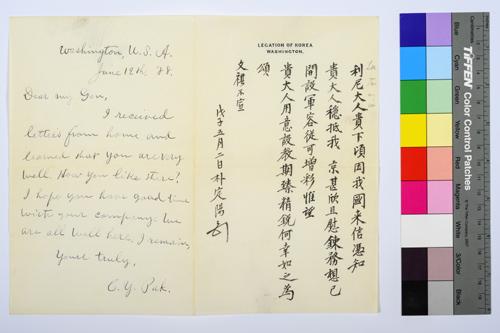 Washington, U.S.A.
June 12th, 88.
Dear my Gen,
I received
letters from home and
learned that you are very
well. How you like there?
I hope you have good time
with your company. We
are all well here. I remain,
Yours truly,
C. Y. Pak.
LEGATION OF KOREA
WASHINGTON.
利尼大人貴下頃因我國來信憑知
貴大人穩抵我 京甚欣且慰鍊務想已
開設軍容從可增彩惟望
貴大人用意設教期臻精銳何幸如之爲
頌
文祺不宣
戊子五月二日朴定陽
TIFFEN Color Control Patches
Blue
Cyan
Green
Yellow
Red
Magenta
White
3/Color
Black